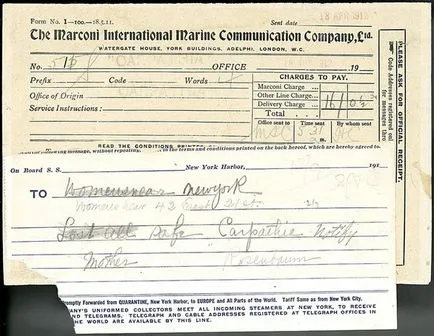 Form No. 1—100—18.5.11. Sent date
18 APR 1912
The Marconi International Marine Communication Company, Ltd.
WATERGATE HOUSE, YORK BUILDINGS, ADELPHI, LONDON, W.C.
No. OFFICE 19
Prefix Code Words
Office of Origin
Service Instructions:
CHARGES TO PAY.
Marconi Charge
Other Line Charge
Delivery Charge
Total
Office sent to Time sent By whom sent
MSC 5 31
READ THE CONDITIONS PRINTED
without repeating. to the terms and conditions printed on the back hereof, which are hereby agreed to.
PLEASE ASK FOR OFFICIAL RECEIPT.
Code Addresses registered
for messages here
On Board S. S. New York Harbor, 191
TO Womenswear newyork
Womens wear 42 East 21 st.
Lost all Safe Carpathia Notify
Mother Rosenbaum
Promptly Forwarded from QUARANTINE, New York Harbor, to EUROPE and All Parts of the World. Tariff Same as from New York City.
ANY'S UNIFORMED COLLECTORS MEET ALL INCOMING STEAMERS AT NEW YORK, TO RECEIVE
AND TELEGRAMS. TELEGRAPH AND CABLE ADDRESSES REGISTERED AT TELEGRAPH OFFICES IN
THE WORLD ARE AVAILABLE BY THIS LINE.